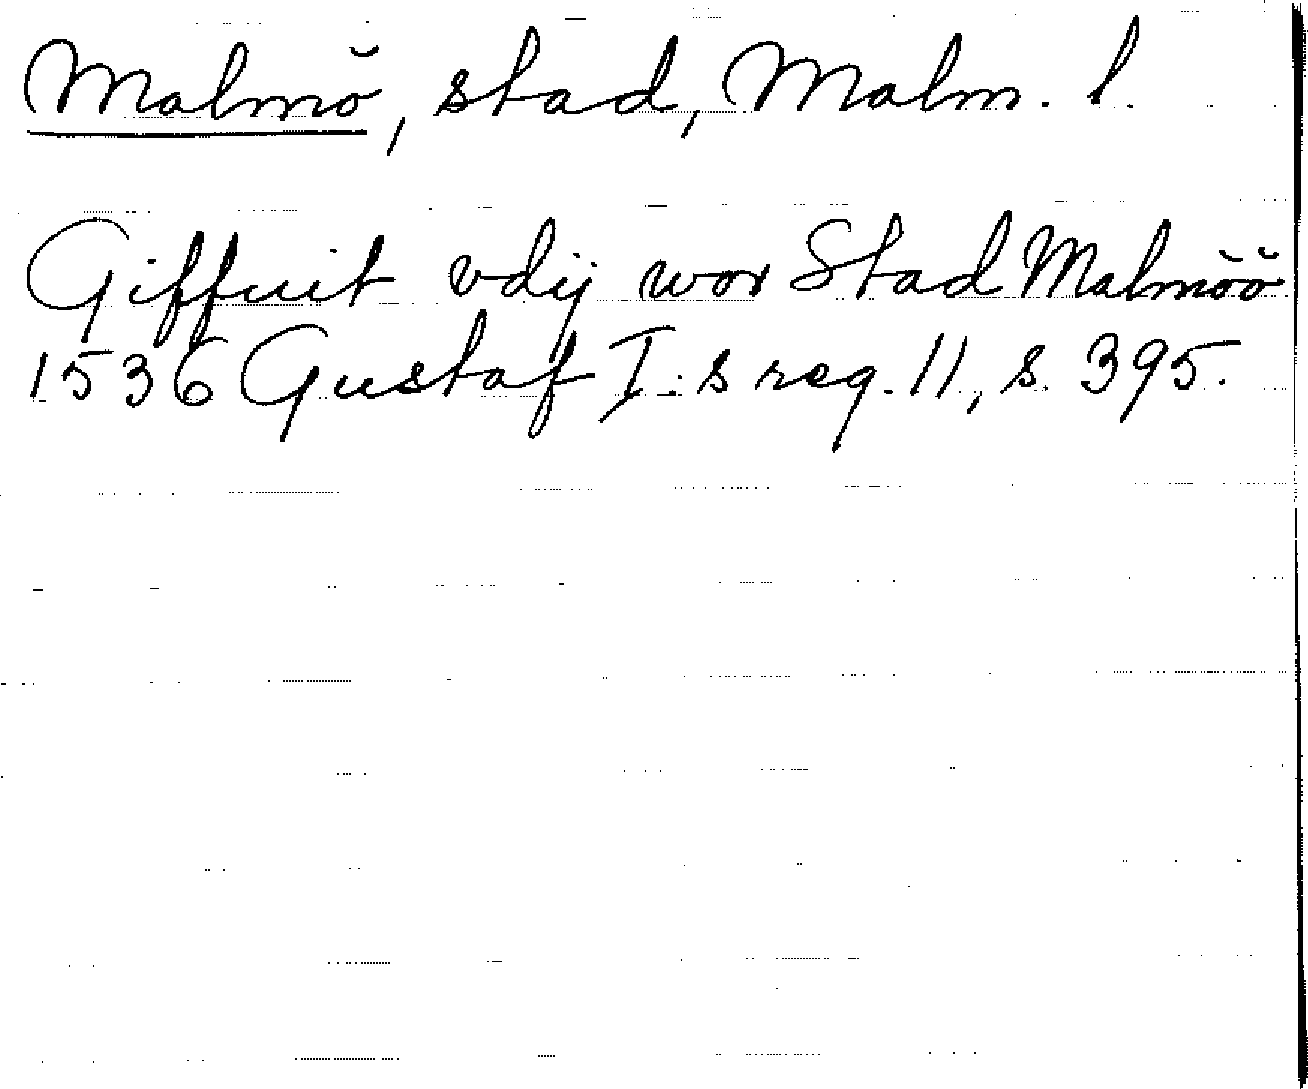 Malmö, stad, Malm. l.
Giffuit vdij wor Stad Malmöö
1536 Gustaf I:s reg. 11, s. 395.